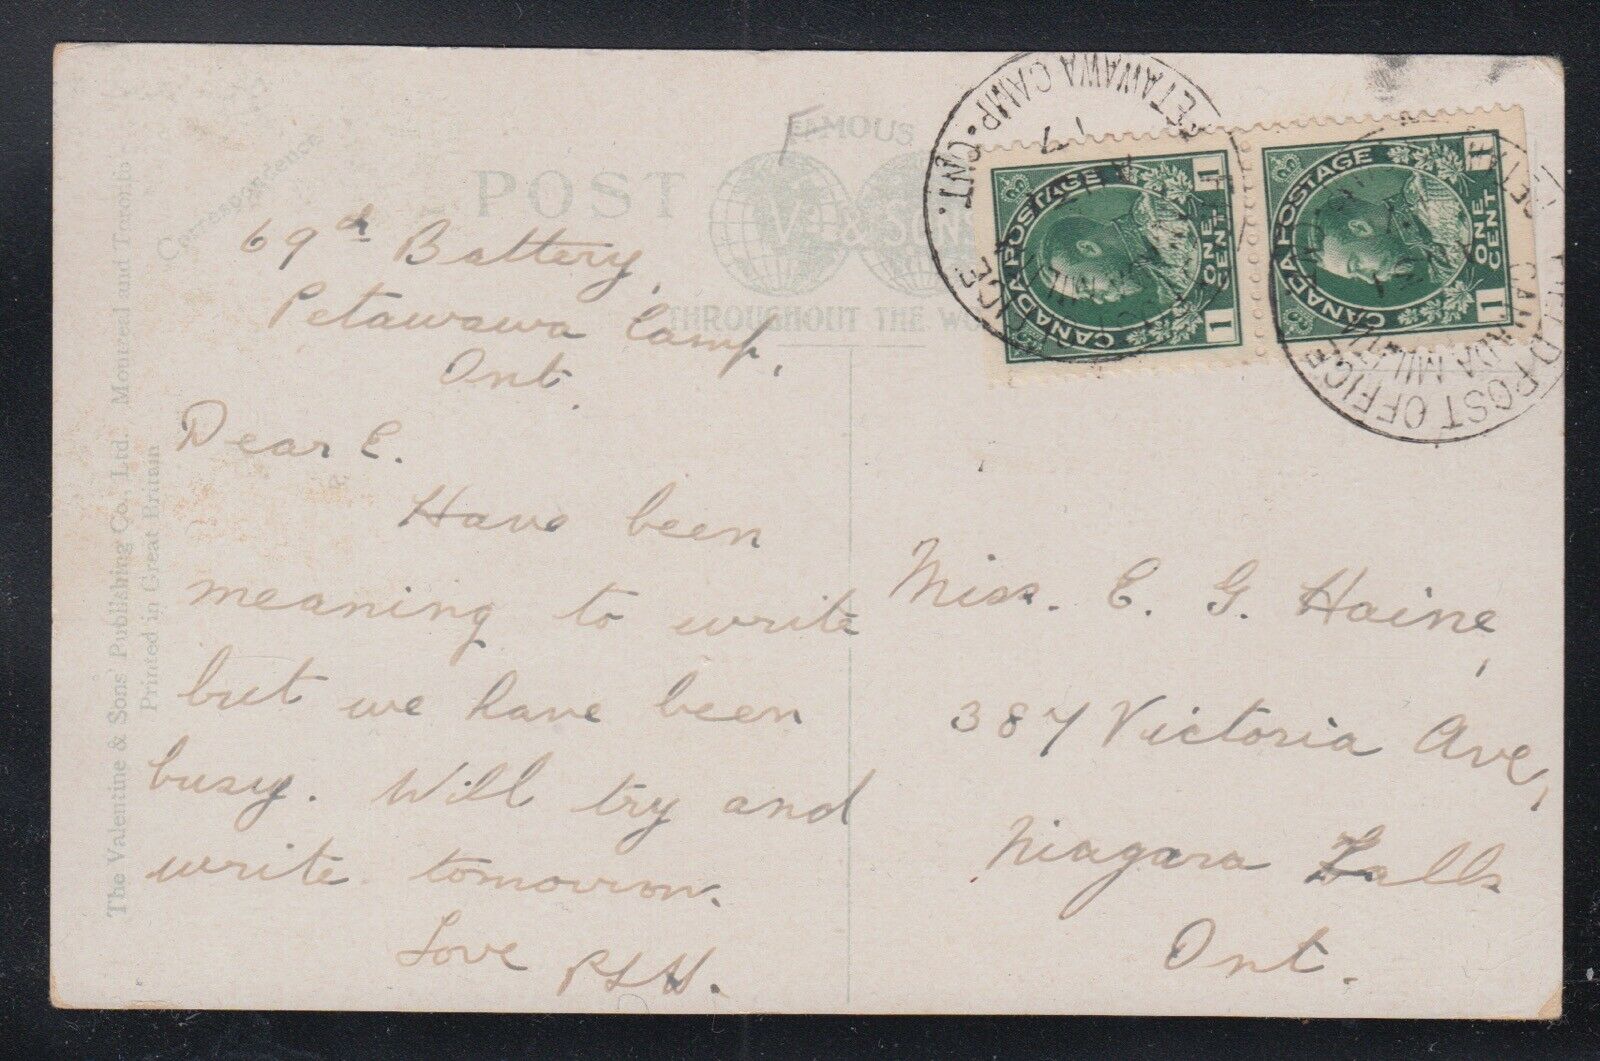 FAMOUS
POST
V & SONS
THROUGHOUT THE WO
Correspondence
The Valentine & Sons' Publishing Co., Ltd. Montreal and Toronto
Printed in Great Britain
69th Battery,
Petawawa Camp,
Ont.
Dear E.
Have been
meaning to write
but we have been
busy. Will try and
write tomorrow.
Love
CANADA POSTAGE
ONE
CENT
1 1
CANADA POSTAGE
ONE
CENT
1 1
PETAWAWA CAMP. ONT.
FIELD POST OFFICE
CANADA MILITIA
Miss. E. G. Haine,
387 Victoria Ave,
Niagara Falls
Ont.